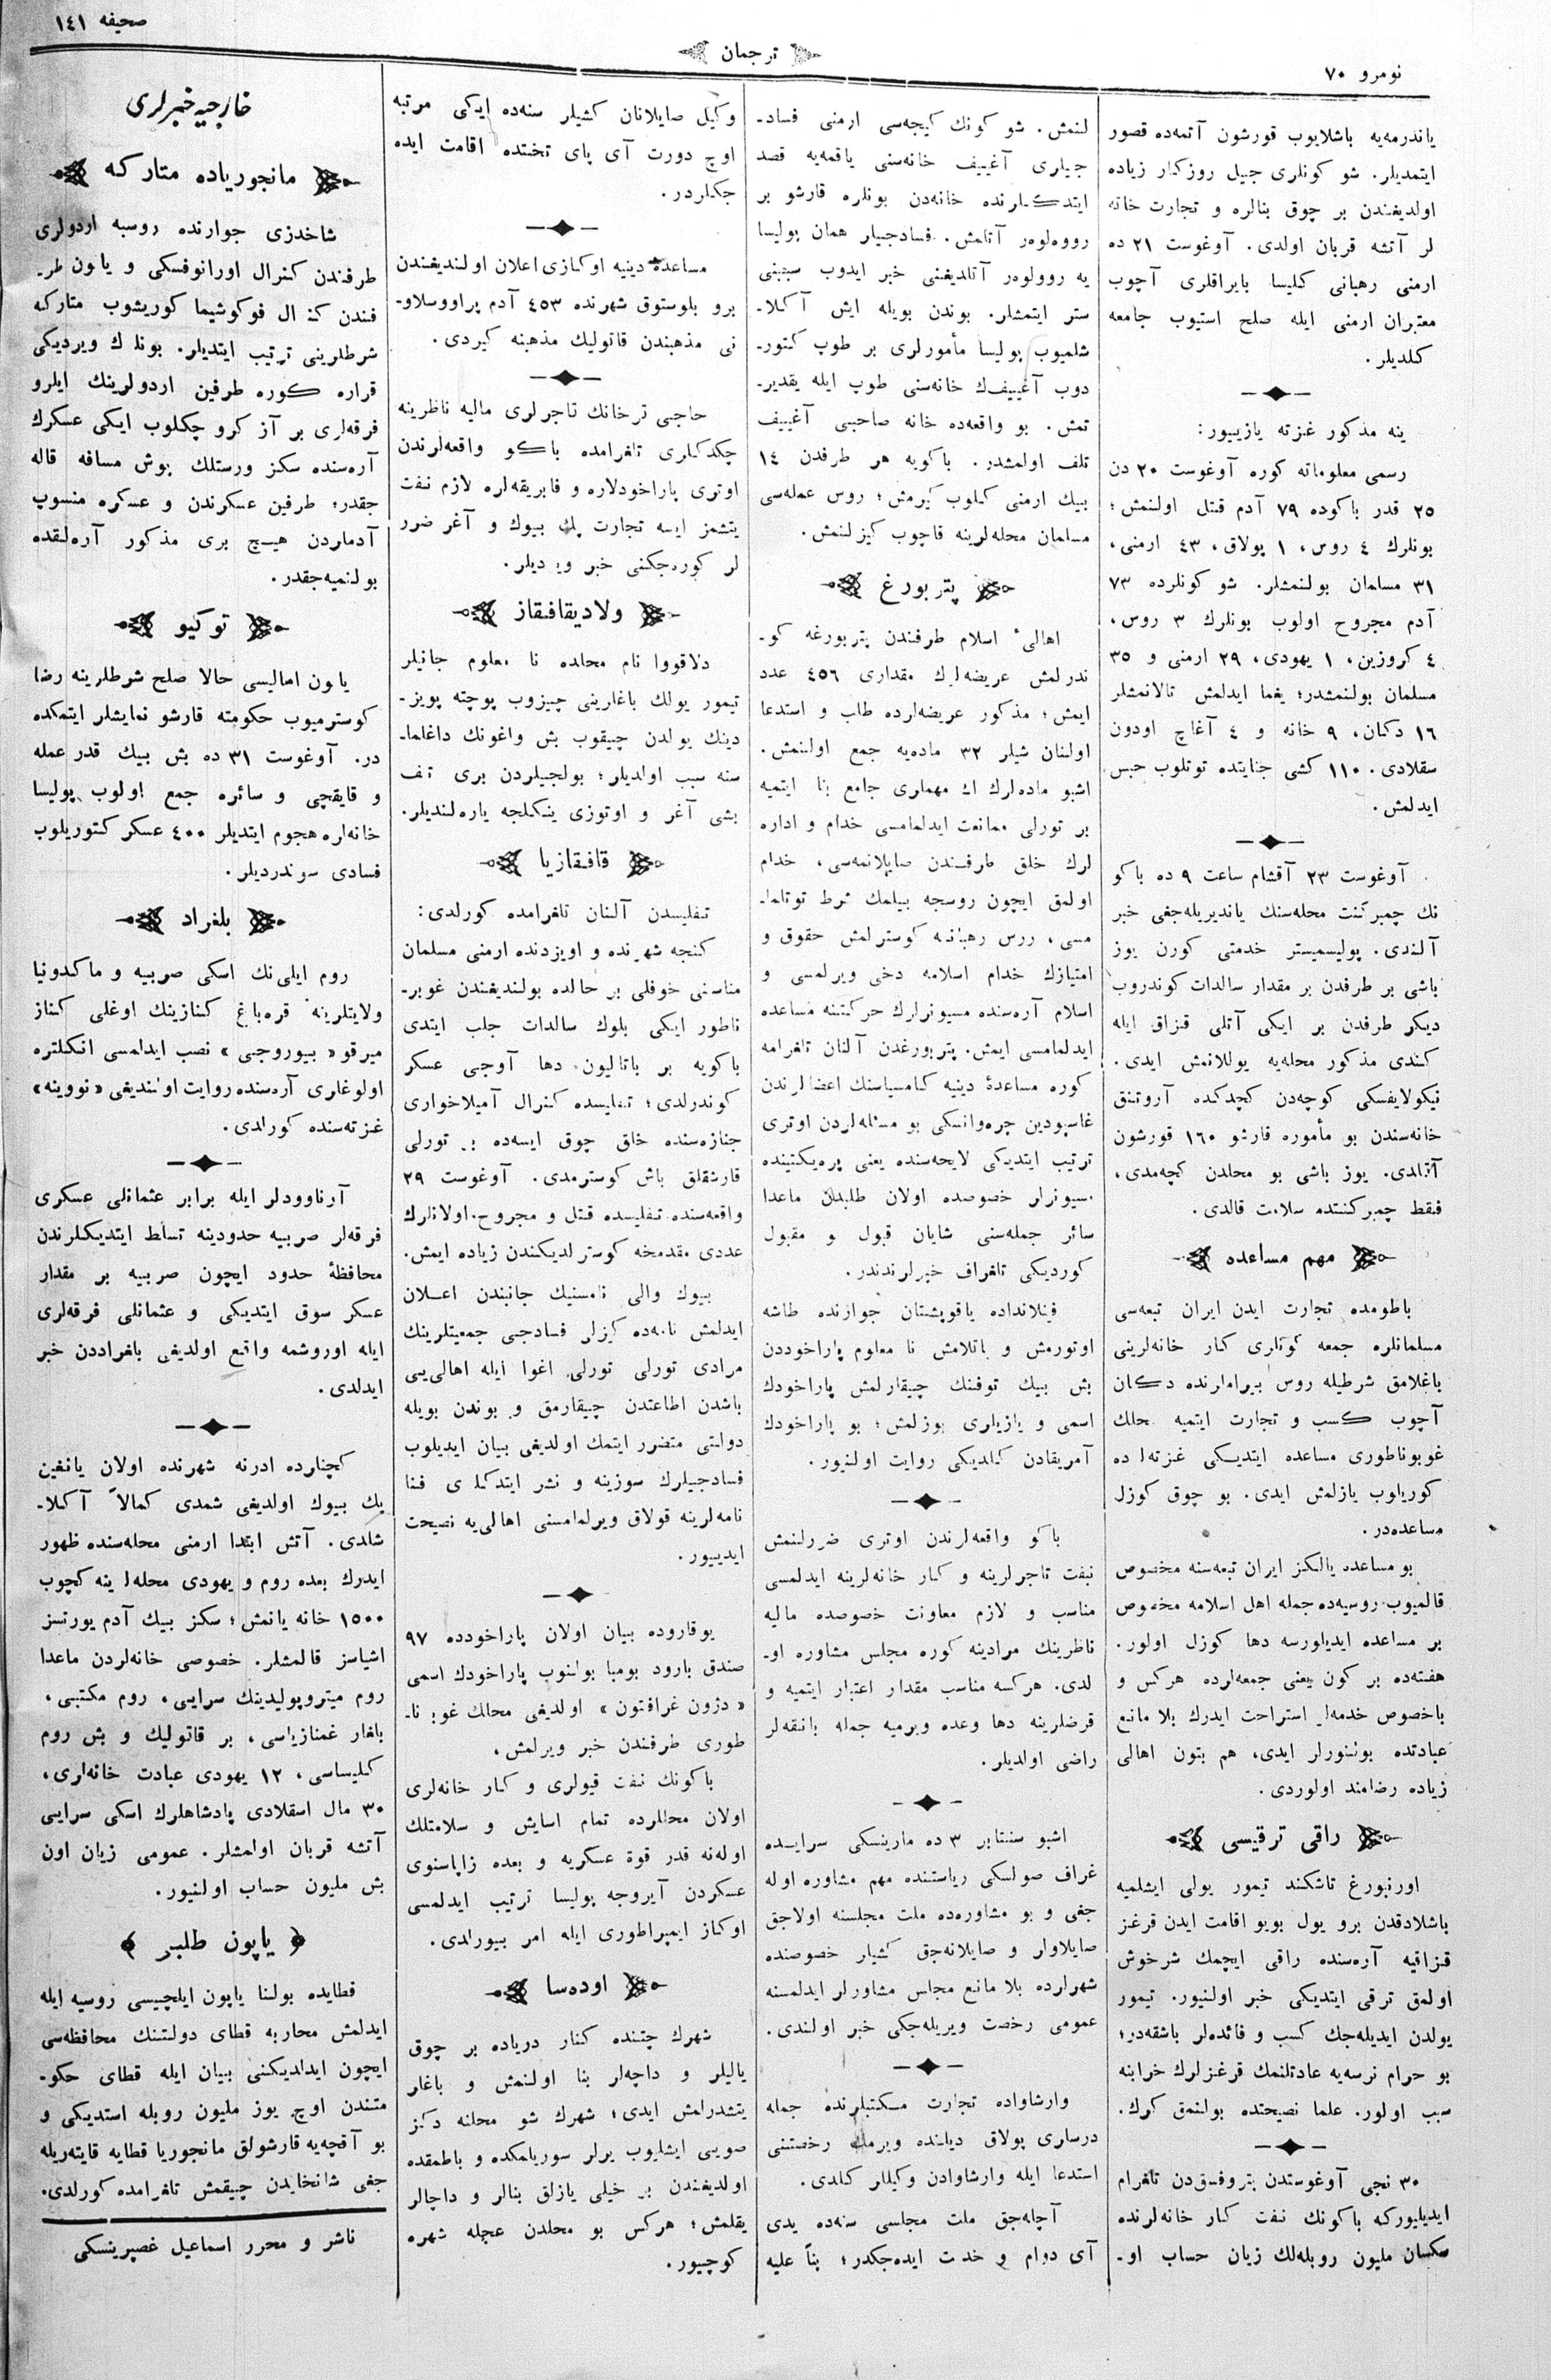 نومرو ٧٠
ترجمان
صحيفه ١٤١
ياندرمه‌يه باشلايوب قورشون آتمه‌ده قصور
ايتمديلر. شو كونلرى جيل روزكار زياده
اولديغندن بر چوق بنالره و تجارت خانه
لر آتشه قربان اولدى. آوغوست ٢١ ده
ارمنى رهبانى كليسا بايراقلرى آچوب
معتبران ارمنى ايله صلح استيوب جامعه
كلديلر.
ينه مذكور غزته يازييور:
رسمى معلوماته كوره آوغوست ٢٠ دن
٢٥ قدر باكوده ٧٩ آدم قتل اولنمش؛
بونلرك ٤ روس، ١ پولاق، ٤٣ ارمنى،
٣١ مسلمان بولنمشلر. شو كونلرده ٧٣
آدم مجروح اولوب بونلرك ٣ روس،
٤ كروزين، ١ يهودى، ٢٩ ارمنى و ٣٥
مسلمان بولنمشدر؛ يغما ايدلمش تالانمشلر
١٦ دكان، ٩ خانه و ٤ آغاچ اودون
سقلادى. ١١٠ كشى جنايتده توتلوب حبس
ايدلمش.
آوغوست ٢٣ آقشام ساعت ٩ ده باكو
نك چمبركنت محله‌سنك يانديريله‌جغى خبر
آلندى. پوليسميستر خدمتى كورن يوز
باشى بر طرفدن بر مقدار سالدات كوندروب
ديكر طرفدن بر ايكى آتلى قزاق ايله
كندى مذكور محله‌يه يوللانمش ايدى.
نيكولايفسكى كوچه‌دن كچدكده آروتنق
خانه‌سندن بو مأموره قارشو ١٦٠ قورشون
آتلدى. يوز باشى بو محلدن كچه‌مدى،
فقط چمبركنتده سلامت قالدى.
مهم مساعده
باطومده تجارت ايدن ايران تبعه‌سى
مسلمانلره جمعه كونلرى كار خانه‌لرينى
باغلامق شرطيله روس بيراملرنده دكان
آچوب كسب و تجارت ايتميه محلك
غوبوناطورى مساعده ايتديكى غزته‌لرده
كوريلوب يازلمش ايدى. بو چوق كوزل
مساعده‌در.
بو مساعده يالكز ايران تبعه‌سنه مخصوص
قالميوب روسيه‌ده جمله اهل اسلامه مخصوص
بر مساعده ايديلورسه دها كوزل اولور.
هفته‌ده بر كون يعنى جمعه‌لرده هركس و
باخصوص خدمه‌لر استراحت ايدرك بلا مانع
عبادتده بولنورلر ايدى، هم بتون اهالى
زياده رضامند اولوردى.
راقى ترقيسى
اورنبورغ تاشكند تيمور يولى ايشلميه
باشلادقدن برو يول بويو اقامت ايدن قرغز
قزاقيه آره‌سنده راقى ايچمك شرخوش
اولمق ترقى ايتديكى خبر اولنيور. تيمور
يولدن ايديله‌جك كسب و فائده‌لر باشقه‌در؛
بو حرام نرسه‌يه عادتلنمك قرغزلرك خرابنه
سبب اولور. علما نصيحتده بولنمق كرك.
٣٠ نجى آوغوستدن پتروفسق‌دن تلغرام
ايديليوركه باكونك نفت كار خانه‌لرنده
سكسان مليون روبله‌لك زيان حساب او-
لنمش. شو كونك كيجه‌سى ارمنى فساد-
جيلرى آغييف خانه‌سنى ياقمه‌يه قصد
ايتدكلرنده خانه‌دن بونلره قارشو بر
رووه‌لوه‌ر آتلمش. فسادجيلر همان پوليسا
يه روولوه‌ر آتلديغنى خبر ايدوب سببنى
ستر ايتمشلر. بوندن بويله ايش آكلا-
شلميوب پوليسا مأمورلرى بر طوپ كتور-
دوب آغييف‌ك خانه‌سنى طوپ ايله يقدير-
تمش. بو واقعه‌ده خانه صاحبى آغييف
تلف اولمشدر. باكويه هر طرفدن ١٤
بيك ارمنى كلوب كيرمش؛ روس عمله‌سى
مسلمان محله‌لرينه قاچوب كيزلنمش.
پتربورغ
اهالئ اسلام طرفندن پتربورغه كو-
ندرلمش عريضه‌لرك مقدارى ٤٥٦ عدد
ايمش؛ مذكور عريضه‌لرده طلب و استدعا
اولنان شيلر ٣٢ ماده‌يه جمع اولنمش.
اشبو ماده‌لرك اك مهملرى جامع بنا ايتميه
بر تورلى ممانعت ايدلمامسى خدام و اداره
لرك خلق طرفندن صايلانمه‌سى، خدام
اولمق ايچون روسجه بيلمك شرط توتلما-
مسى، روس رهباننه كوسترلمش حقوق و
امتيازك خدام اسلامه دخى ويرلمسى و
اسلام آره‌سنده مسيونرلرك حركتنه مساعده
ايدلمامسى ايمش. پتربورغدن آلنان تلغرامه
كوره مساعدۀ دينيه كامسياسنك اعضالرندن
غاسپودين چره‌وانسكى بو مسئله‌لردن اوترى
ترتيب ايتديكى لايحه‌سنده يعنى پره‌يكتينده
مسيونرلر خصوصده اولان طلبدن ماعدا
سائر جمله‌سنى شايان قبول و مقبول
كورديكى تلغراف خبرلرندندر.
فينلانداده ياقوپشتان جوارنده طاشه
اوتورمش و باتلامش نا معلوم پاراخوددن
بش بيك توفنك چيقارلمش پاراخودك
اسمى و يازيلرى بوزلمش؛ بو پاراخودك
آمريقادن كلديكى روايت اولنيور.
باكو واقعه‌لرندن اوترى ضررلنمش
نفت تاجرلرينه و كار خانه‌لرينه ايدلمسى
مناسب و لازم معاونت خصوصده ماليه
ناظرينك مرادينه كوره مجلس مشاوره او-
لدى. هركسه مناسب مقدار اعتبار ايتميه و
قرضلرينه دها وعده ويرميه جمله بانقه‌لر
راضى اولديلر.
اشبو سنتابر ٣ ده مارينسكى سرايده
غراف صولسكى رياستنده مهم مشاوره اوله
جغى و بو مشاوره‌ده ملت مجلسنه اولاجق
صايلاولر و صايلانه‌جق كشيلر خصوصنده
شهرلرده بلا مانع مجلس مشاورلر ايدلمسنه
عمومى رخصت ويريله‌جكى خبر اولندى.
وارشاواده تجارت مكتبلرنده جمله
درسلرى پولاق ديلنده ويرمك رخصتنى
استدعا ايله وارشاوادن وكيللر كلدى.
آچله‌جق ملت مجلسى سنه‌ده يدى
آى دوام و خدمت ايده‌جكدر؛ بناً عليه
وكيل صايلانان كشيلر سنه‌ده ايكى مرتبه
اوچ دورت آى پاى تختده اقامت ايده
جكلردر.
مساعدۀ دينيه اوكازى اعلان اولنديغندن
برو بلوستوق شهرنده ٤٥٣ آدم پراووسلاو-
نى مذهبندن قاتوليك مذهبنه كيردى.
حاجى ترخانك تاجرلرى ماليه ناظرينه
چكدكلرى تلغرامده باكو واقعه‌لرندن
اوترى پاراخودلاره و فابريقه‌لره لازم نفت
يتشمز ايسه تجارت پك بيوك و آغر ضرر
لر كوره‌جكنى خبر ويرديلر.
ولاديقافقاز
دلاقووا نام محلده نا معلوم جانيلر
تيمور يولك باغلرينى چيزوب پوچته پويز-
دينك يولدن چيقوب بش واغونك داغلما-
سنه سبب اولديلر؛ يولجيلردن برى تلف
بشى آغر و اوتوزى ينكلجه ياره‌لنديلر.
قافقازيا
تفليسدن آلنان تلغرامده كورلدى:
كنجه شهرنده و اويزدنده ارمنى مسلمان
مناسنى خوفلى بر حالده بولنديغندن غوبر-
ناطور ايكى بلوك سالدات جلب ايتدى
باكويه بر باتاليون دها آوجى عسكر
كوندرلدى؛ تفليسده كنرال آميلاخوارى
جنازه‌سنده خلق چوق ايسه‌ده بر تورلى
قارشقلق باش كوسترمدى. آوغوست ٢٩
واقعه‌سنده تفليسده قتل و مجروح اولانلرك
عددى مقدمجه كوسترلديكندن زياده ايمش.
بيوك والى نامسنيك جانبندن اعلان
ايدلمش نامه‌ده كيزلى فسادجى جمعيتلرينك
مرادى تورلى تورلى اغوا ايله اهالى‌يى
باشدن اطاعتدن چيقارمق و بوندن بويله
دولتى متضرر ايتمك اولديغى بيان ايديلوب
فسادجيلرك سوزينه و نشر ايتدكلرى فنا
نامه‌لرينه قولاق ويرلمامسنى اهالى‌يه نصيحت
ايدييور.
يوقاروده بيان اولان پاراخودده ٩٧
صندق بارود بومبا بولنوب پاراخودك اسمى
«دژون غرافتون» اولديغى محلك غوبرنا-
طورى طرفندن خبر ويرلمش،
باكونك نفت قيولرى و كار خانه‌لرى
اولان محللرده تمام اسايش و سلامتلك
اوله‌نه قدر قوۀ عسكريه و بعده زاپاسنوى
عسكردن آيروجه پوليسا ترتيب ايدلمسى
اوكاز ايمپراطورى ايله امر بيورلدى.
اوده‌سا
شهرك چتنده كنار درياده بر چوق
ياليلر و داچه‌لر بنا اولنمش و باغلر
يتشدرلمش ايدى؛ شهرك شو محلنه دكز
صويى ايشليوب يرلر سوريلمكده و باطمقده
اولديغندن بر خيلى يازلق بنالر و داچالر
يقلمش؛ هركس بو محلدن عجله شهره
كوچييور.
خارجيه خبرلرى
مانجورياده متاركه
شاخدزى جوارنده روسيه اردولرى
طرفندن كنرال اورانوفسكى و ياپون طر-
فندن كنرال فوكوشيما كوريشوب متاركه
شرطلرينى ترتيب ايتديلر. بونلرك ويرديكى
قراره كوره طرفين اردولرينك ايلرو
فرقه‌لرى بر آز كرو چكلوب ايكى عسكرك
آره‌سنده سكز ورستلك بوش مسافه قاله
جقدر؛ طرفين عسكرندن و عسكره منسوب
آدملردن هيچ برى مذكور آره‌لقده
بولنميه‌جقدر.
توكيو
ياپون اهاليسى حالا صلح شرطلرينه رضا
كوسترميوب حكومته قارشو نمايشلر ايتمكده
در. آوغوست ٣١ ده بش بيك قدر عمله
و قايقچى و سائره جمع اولوب پوليسا
خانه‌لره هجوم ايتديلر ٤٠٠ عسكر كتوريلوب
فسادى سوندرديلر.
بلغراد
روم ايلى‌نك اسكى صربيه و ماكدونيا
ولايتلرينه قره‌باغ كنازينك اوغلى كناز
ميرقو «بيوروجى» نصب ايدلمسى انكلتره
اولوغلرى آره‌سنده روايت اولنديغى «نووينه»
غزته‌سنده كورلدى.
آرناوودلر ايله برابر عثمانلى عسكرى
فرقه‌لر صربيه حدودينه تسلط ايتديكلرندن
محافظۀ حدود ايچون صربيه بر مقدار
عسكر سوق ايتديكى و عثمانلى فرقه‌لرى
ايله اوروشمه واقع اولديغى بلغراددن خبر
ايدلدى.
كچنلرده ادرنه شهرنده اولان يانغين
پك بيوك اولديغى شمدى كمالاً آكلا-
شلدى. آتش ابتدا ارمنى محله‌سنده ظهور
ايدرك بعده روم و يهودى محله‌لرينه كچوب
١٥٠٠ خانه يانمش؛ سكز بيك آدم يورتسز
اشياسز قالمشلر. خصوصى خانه‌لردن ماعدا
روم ميتروپوليدينك سرايى، روم مكتبى،
بلغار غمنازياسى، بر قاتوليك و بش روم
كليساسى، ١٢ يهودى عبادت خانه‌لرى،
٣٠ مال اسقلادى پادشاهلرك اسكى سرايى
آتشه قربان اولمشلر. عمومى زيان اون
بش مليون حساب اولنيور.
ياپون طلبى
قطايده بولنا ياپون ايلچيسى روسيه ايله
ايدلمش محاربه قطاى دولتنك محافظه‌سى
ايچون ايدلديكنى بيان ايله قطاى حكو-
متندن اوچ يوز مليون روبله استديكى و
بو آقچه‌يه قارشولق مانجوريا قطايه قايته‌ريله
جغى شانخايدن چيقمش تلغرامده كورلدى.
ناشر و محرر اسماعيل غصپرينسكى